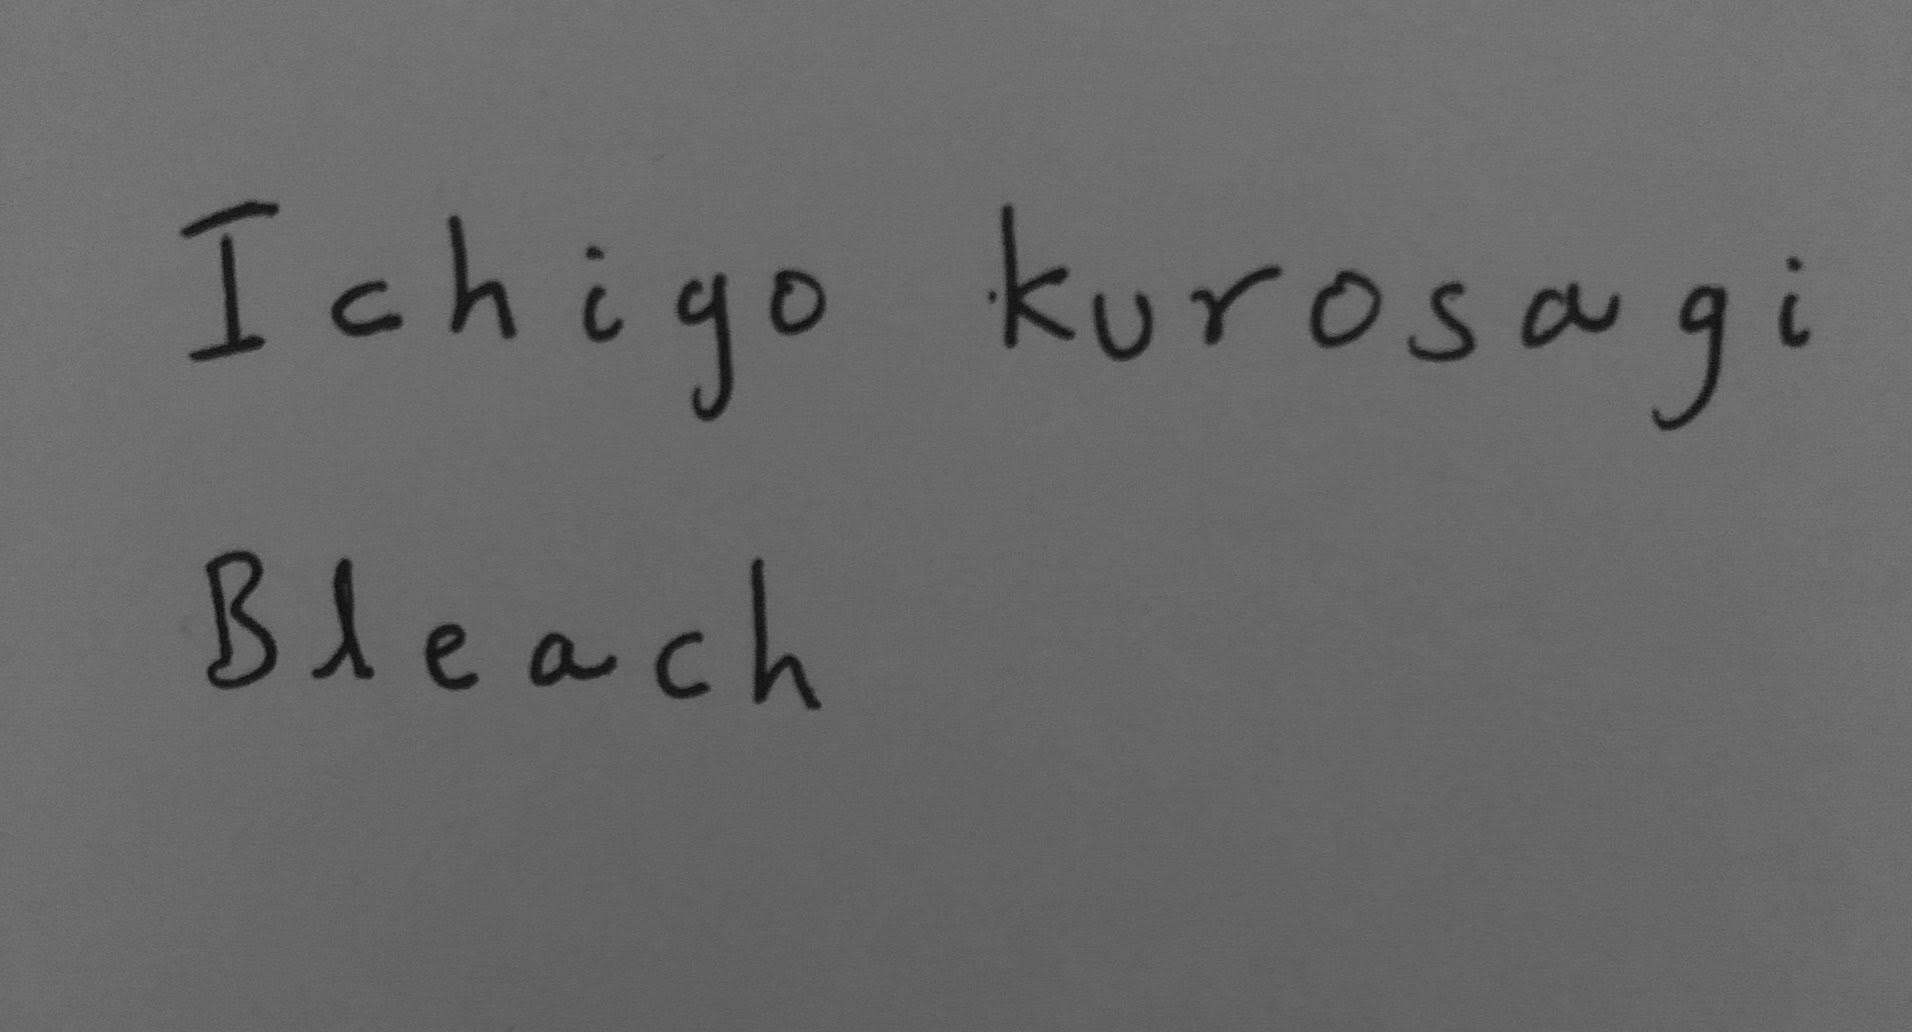 Ichigo kurosagi
Bleach